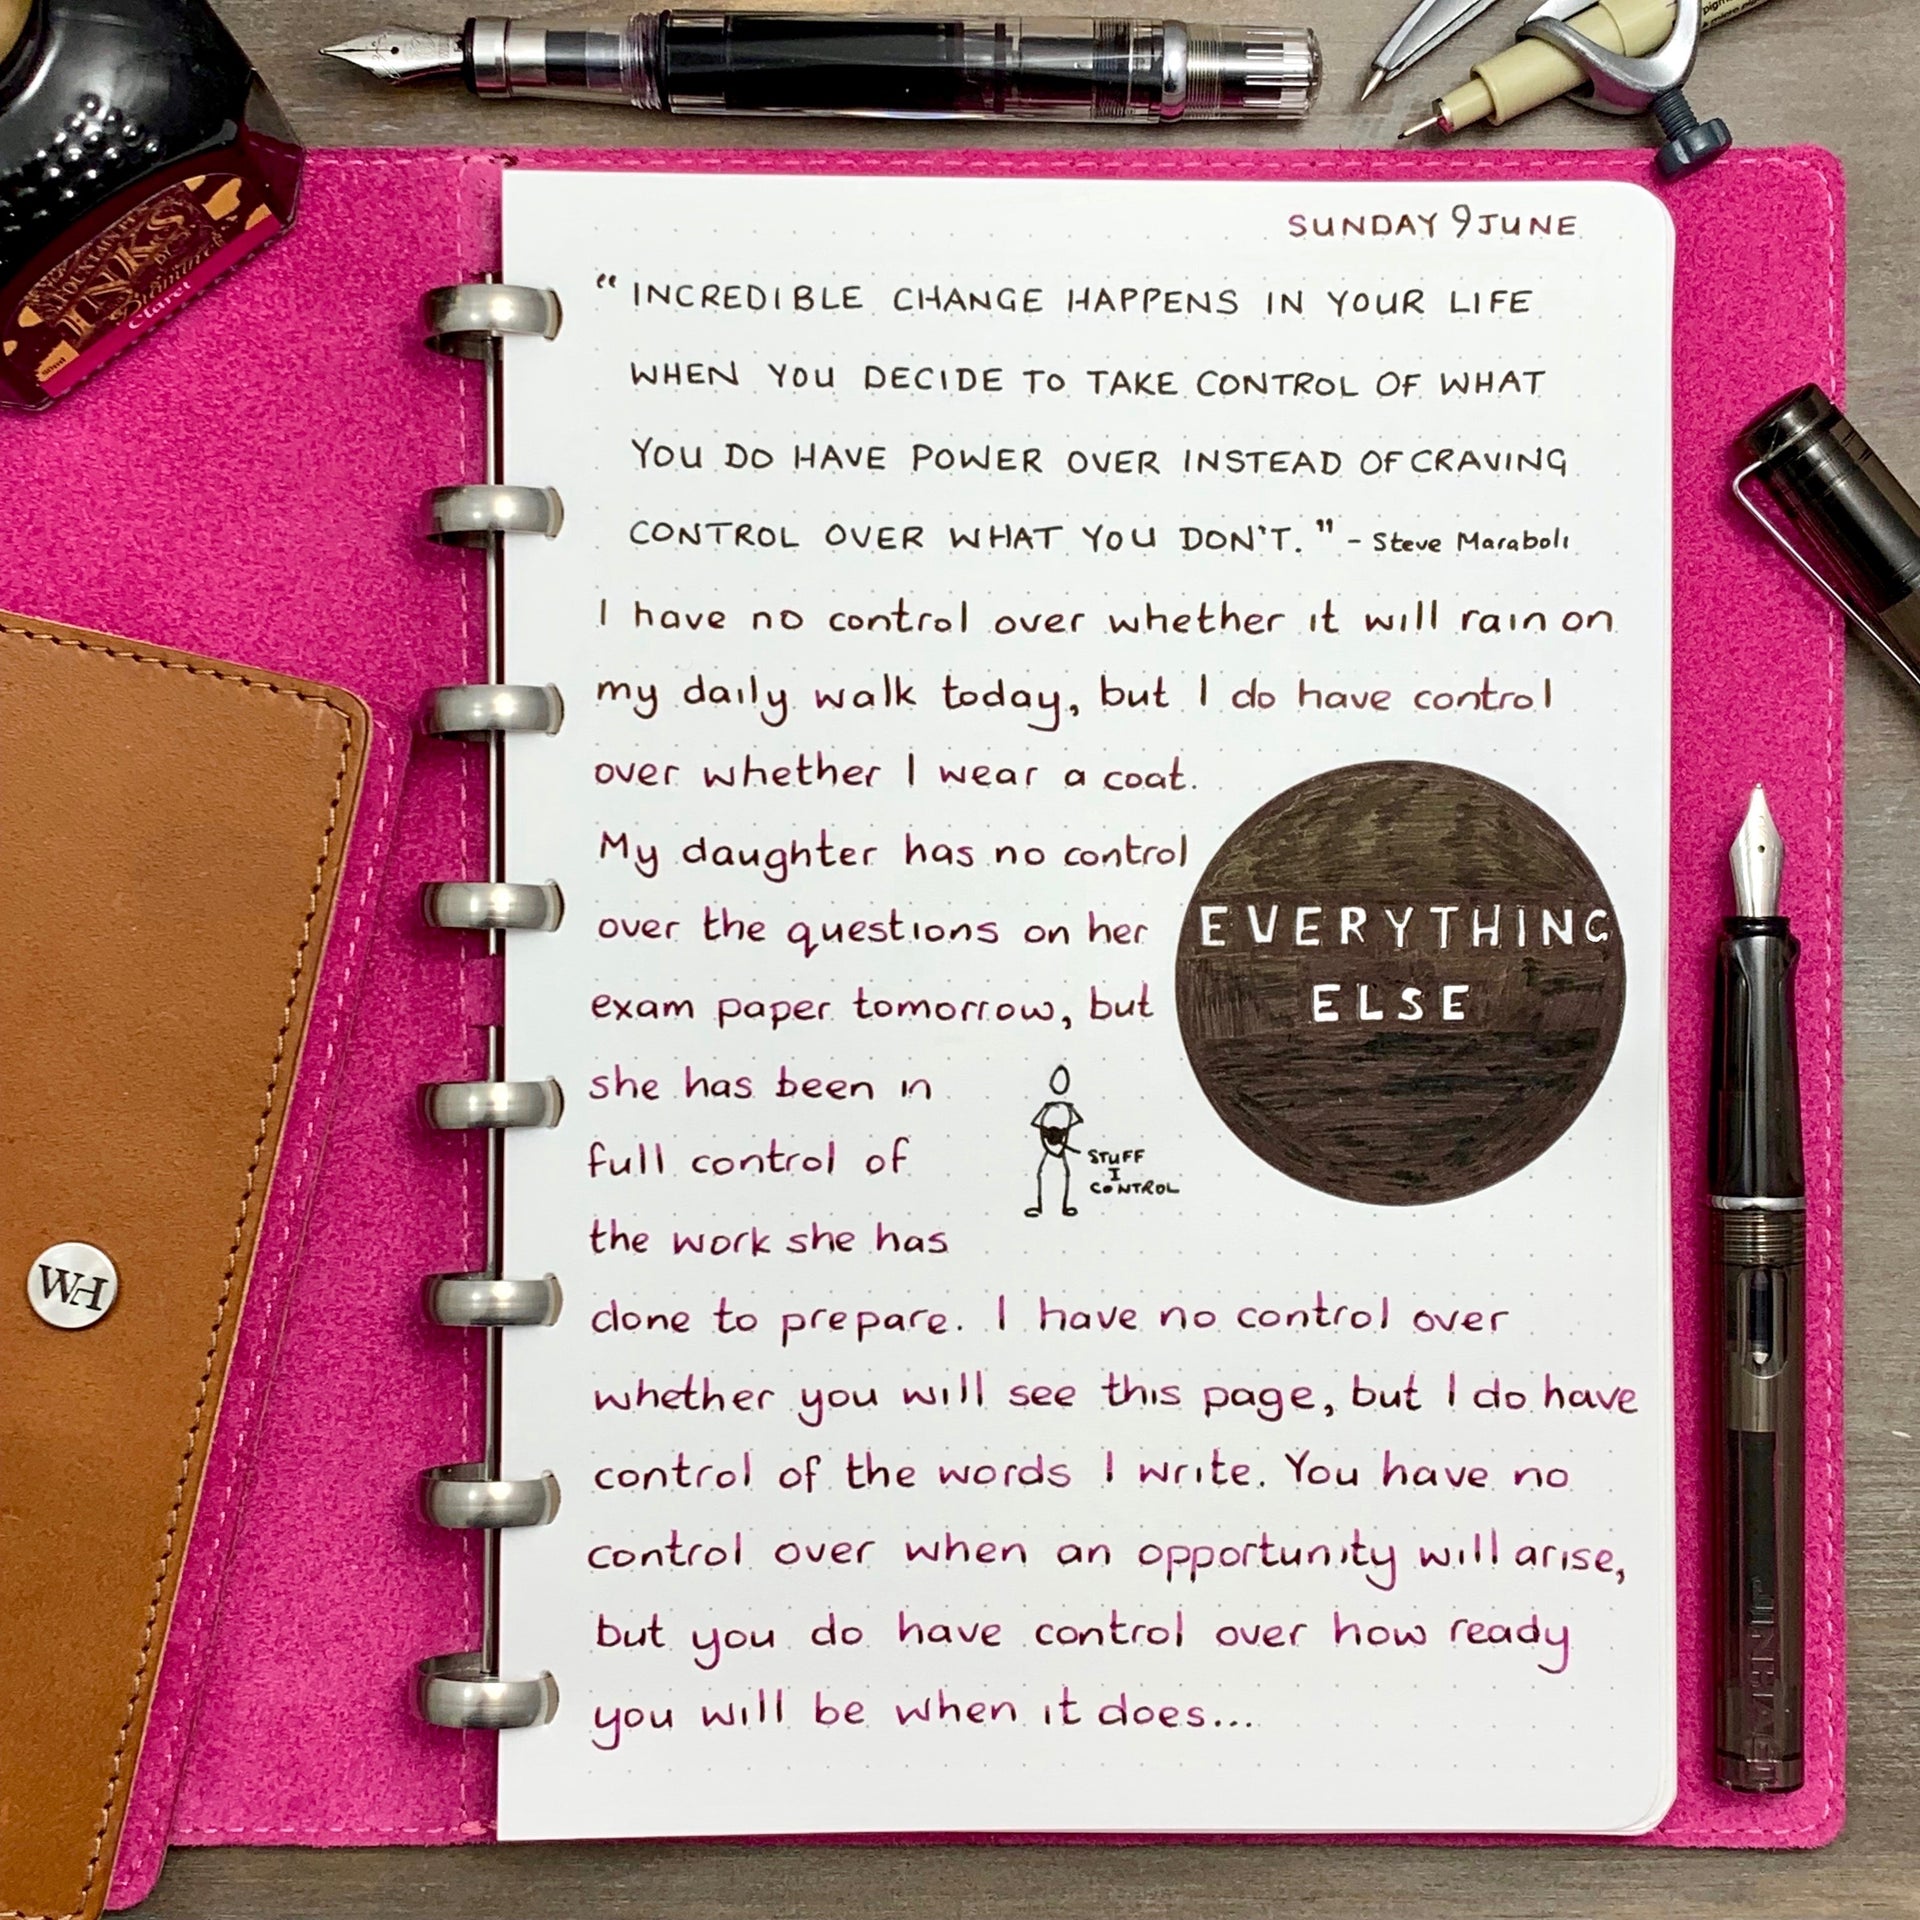 FOUNTAIN
INKS
Diamine
Claret
50ml
SUNDAY 9 JUNE
“ INCREDIBLE CHANGE HAPPENS IN YOUR LIFE
WHEN YOU DECIDE TO TAKE CONTROL OF WHAT
YOU DO HAVE POWER OVER INSTEAD OF CRAVING
CONTROL OVER WHAT YOU DON'T. ” - Steve Maraboli
I have no control over whether it will rain on
my daily walk today, but I do have control
over whether I wear a coat.
My daughter has no control
over the questions on her
exam paper tomorrow, but
she has been in
full control of
the work she has
done to prepare. I have no control over
whether you will see this page, but I do have
control of the words I write. You have no
control over when an opportunity will arise,
but you do have control over how ready
you will be when it does...
EVERYTHING
ELSE
STUFF
I
CONTROL
WH
JINHAO